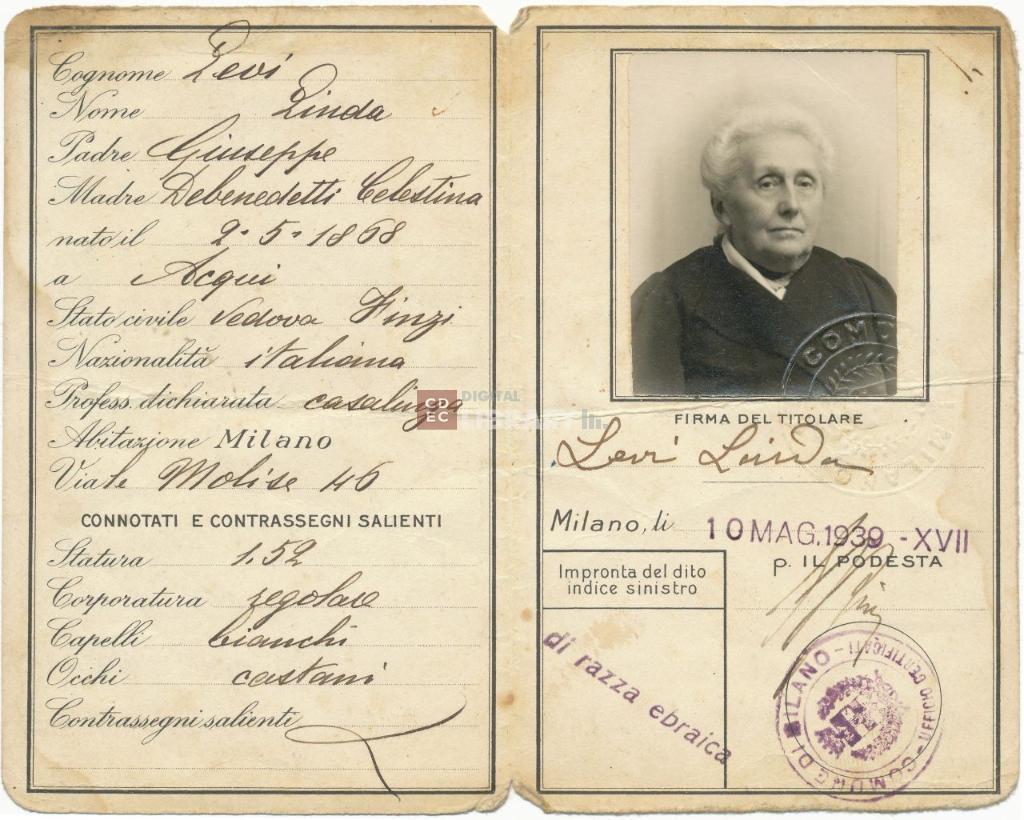 Cognome Levi
Nome Linda
Padre Giuseppe
Madre Debenedetti Celestina
nato il 2-5-1868
a Acqui
Stato civile Vedova Finzi
Nazionalità italiana
Profess. dichiarata casalinga
Abitazione Milano
Viale Molise 46
CONNOTATI E CONTRASSEGNI SALIENTI
Statura 1.52
Corporatura regolare
Capelli bianchi
Occhi castani
Contrassegni salienti
CDEC DIGITAL LIBRARY
COMUNE MILANO
FIRMA DEL TITOLARE
Levi Linda
Milano, li 10 MAG. 1939 - XVII
p. IL PODESTA
Impronta del dito
indice sinistro
di razza ebraica
COMUNE DI MILANO - UFFICIO CERTIFICATI -